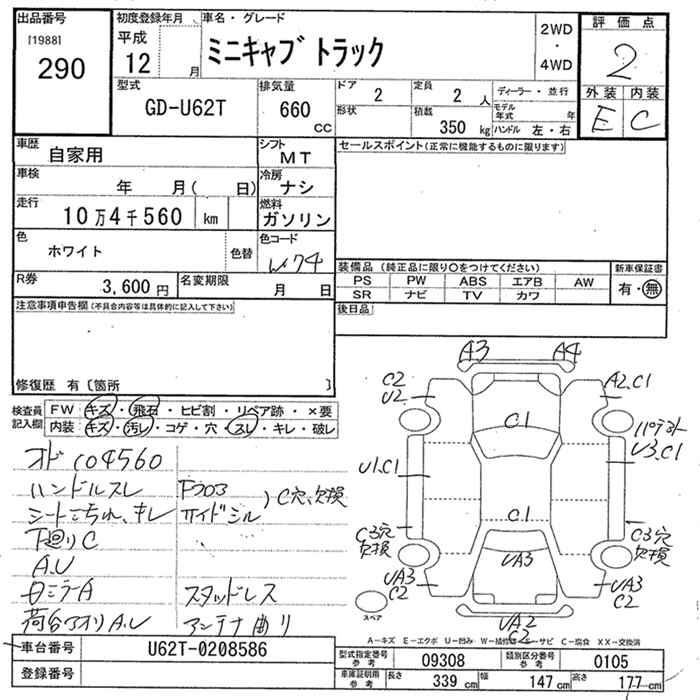 出品番号
[1988]
290
初度登録年月
平成
12 月
車名・グレード
ミニキャブ トラック
2WD
・
4WD
評価点
2
外装 内装
E C
型式
GD-U62T
排気量
660
CC
ドア
2
定員
2 人
形状
積載
350 kg
ディーラー・並行
モデル年式 年
ハンドル 左・右
車歴
自家用
シフト
MT
車検
年 月( 日)
冷房
ナシ
走行
10万4千560 km
燃料
ガソリン
色
ホワイト
色替
色コード
W74
R券
3,600 円
名変期限
月 日
セールスポイント(正常に機能するものに限ります)
装備品 (純正品に限り○をつけてください)
PS PW ABS エアB AW
SR ナビ TV カワ
新車保証書
有・無
後日品
注意事項申告欄(不具合内容等は具体的に記入して下さい)
修復歴 有〔箇所 〕
検査員
記入欄
FW キズ・飛石・ヒビ割・リペア跡・×要
内装 キズ・汚レ・コゲ・穴・スレ・キレ・破レ
オド104560
ハンドルスレ
シートこちれ、キレ
下廻りC
A.U
ミラーA
荷台アオリA.U
Fフロア
サイドシル
)C穴、欠損
スタッドレス
アンテナ曲り
A3 A4
C2
U2
A2.C1
C1
パテヌト
U3.C1
U1.C1
C1
C3穴
欠損
C3穴
欠損
UA3
UA3
C2
UA3
C2
スペア
UA2
C2
A-キズ E-エクボ U-凹み W-補修跡 S-サビ C-腐食 XX-交換済
車台番号
U62T-0208586
登録番号
型式指定番号
参考
09308
類別区分番号
参考
0105
車庫証明用
参考
長さ
339 cm
幅
147 cm
高さ
177 cm